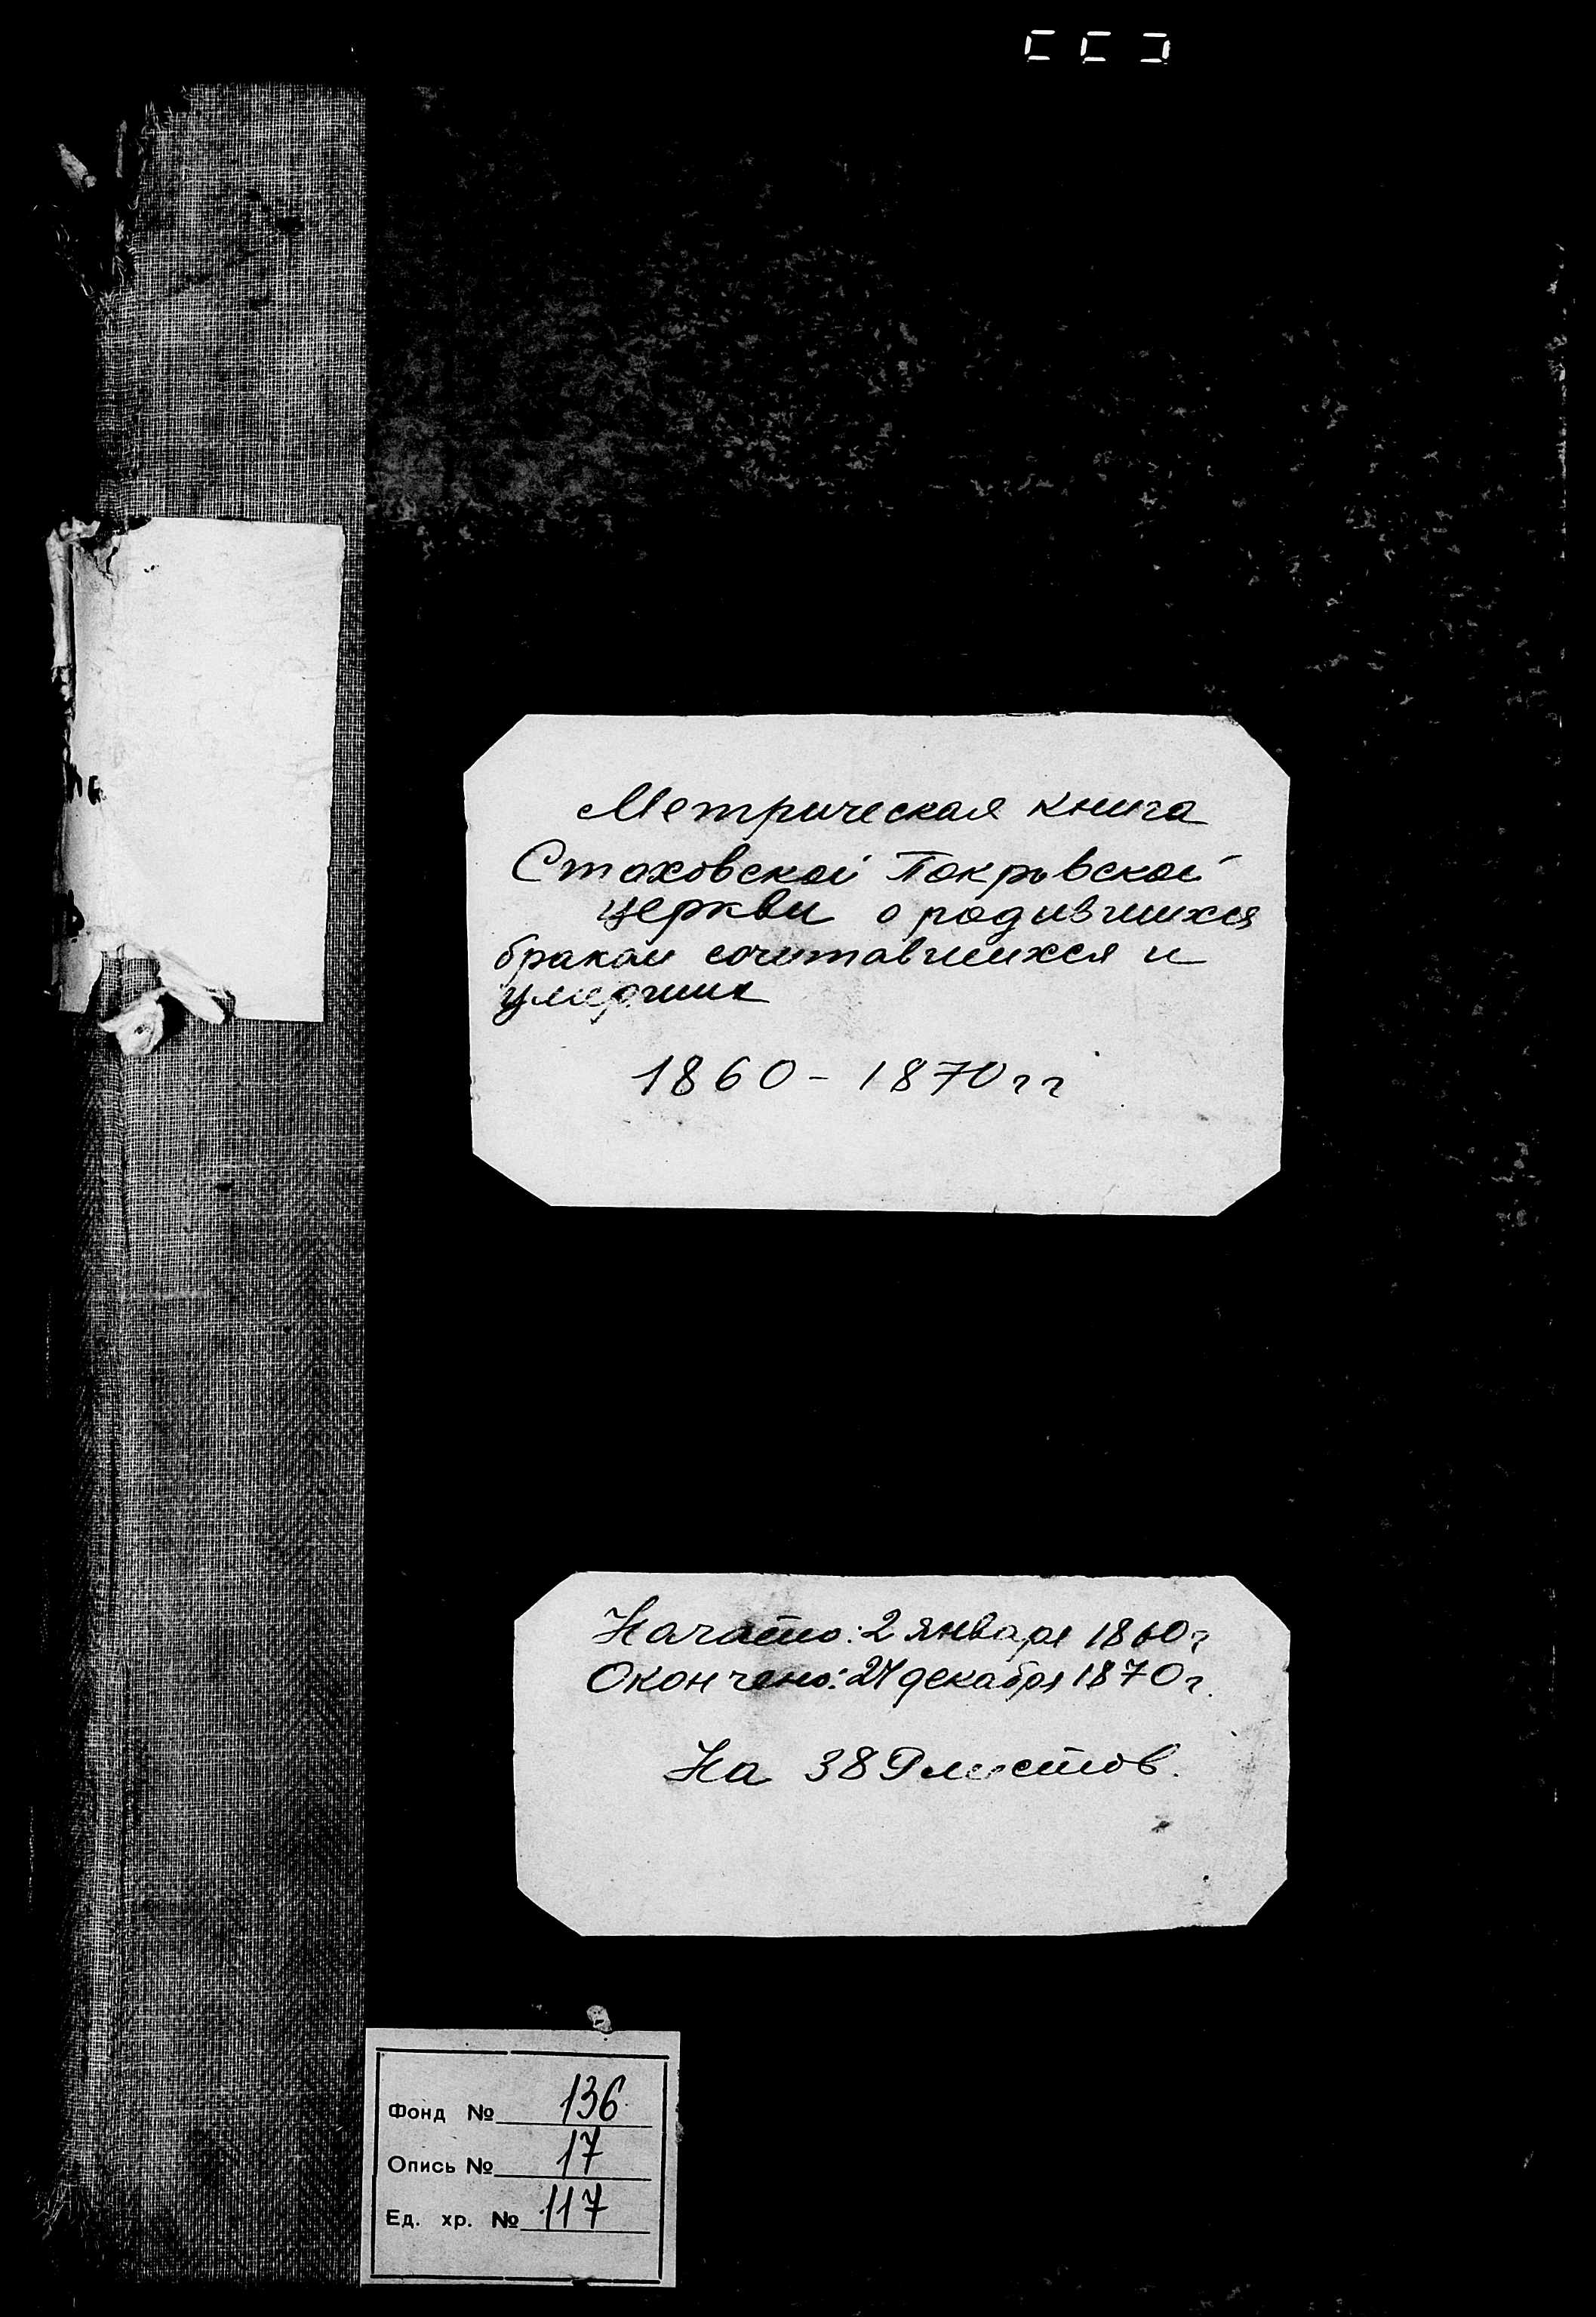 Метрическая книга
Стаховской Покровской
церкви о родившихся
браком сочитавшихся и
умерших
1860 - 1870 гг
Начато: 2 января 1860 г
Окончено: 27 декабря 1870 г.
На 389 листов.
Фонд № 136
Опись № 17
Ед. хр. № 117